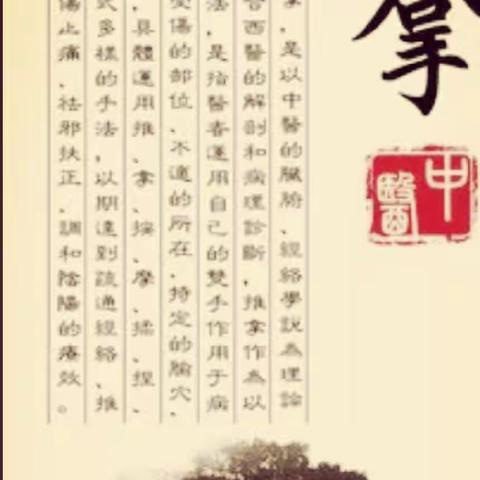 拿
中醫
拿,是以中醫的臟腑、經絡學說為理論
合西醫的解剖和病理診斷,推拿作為以
法,是指醫者運用自己的雙手作用于病
受傷的部位、不適的所在、特定的腧穴、
、具體運用推、拿、按、摩、揉、捏、
式多樣的手法,以期達到疏通經絡、推
傷止痛、祛邪扶正、調和陰陽的療效。